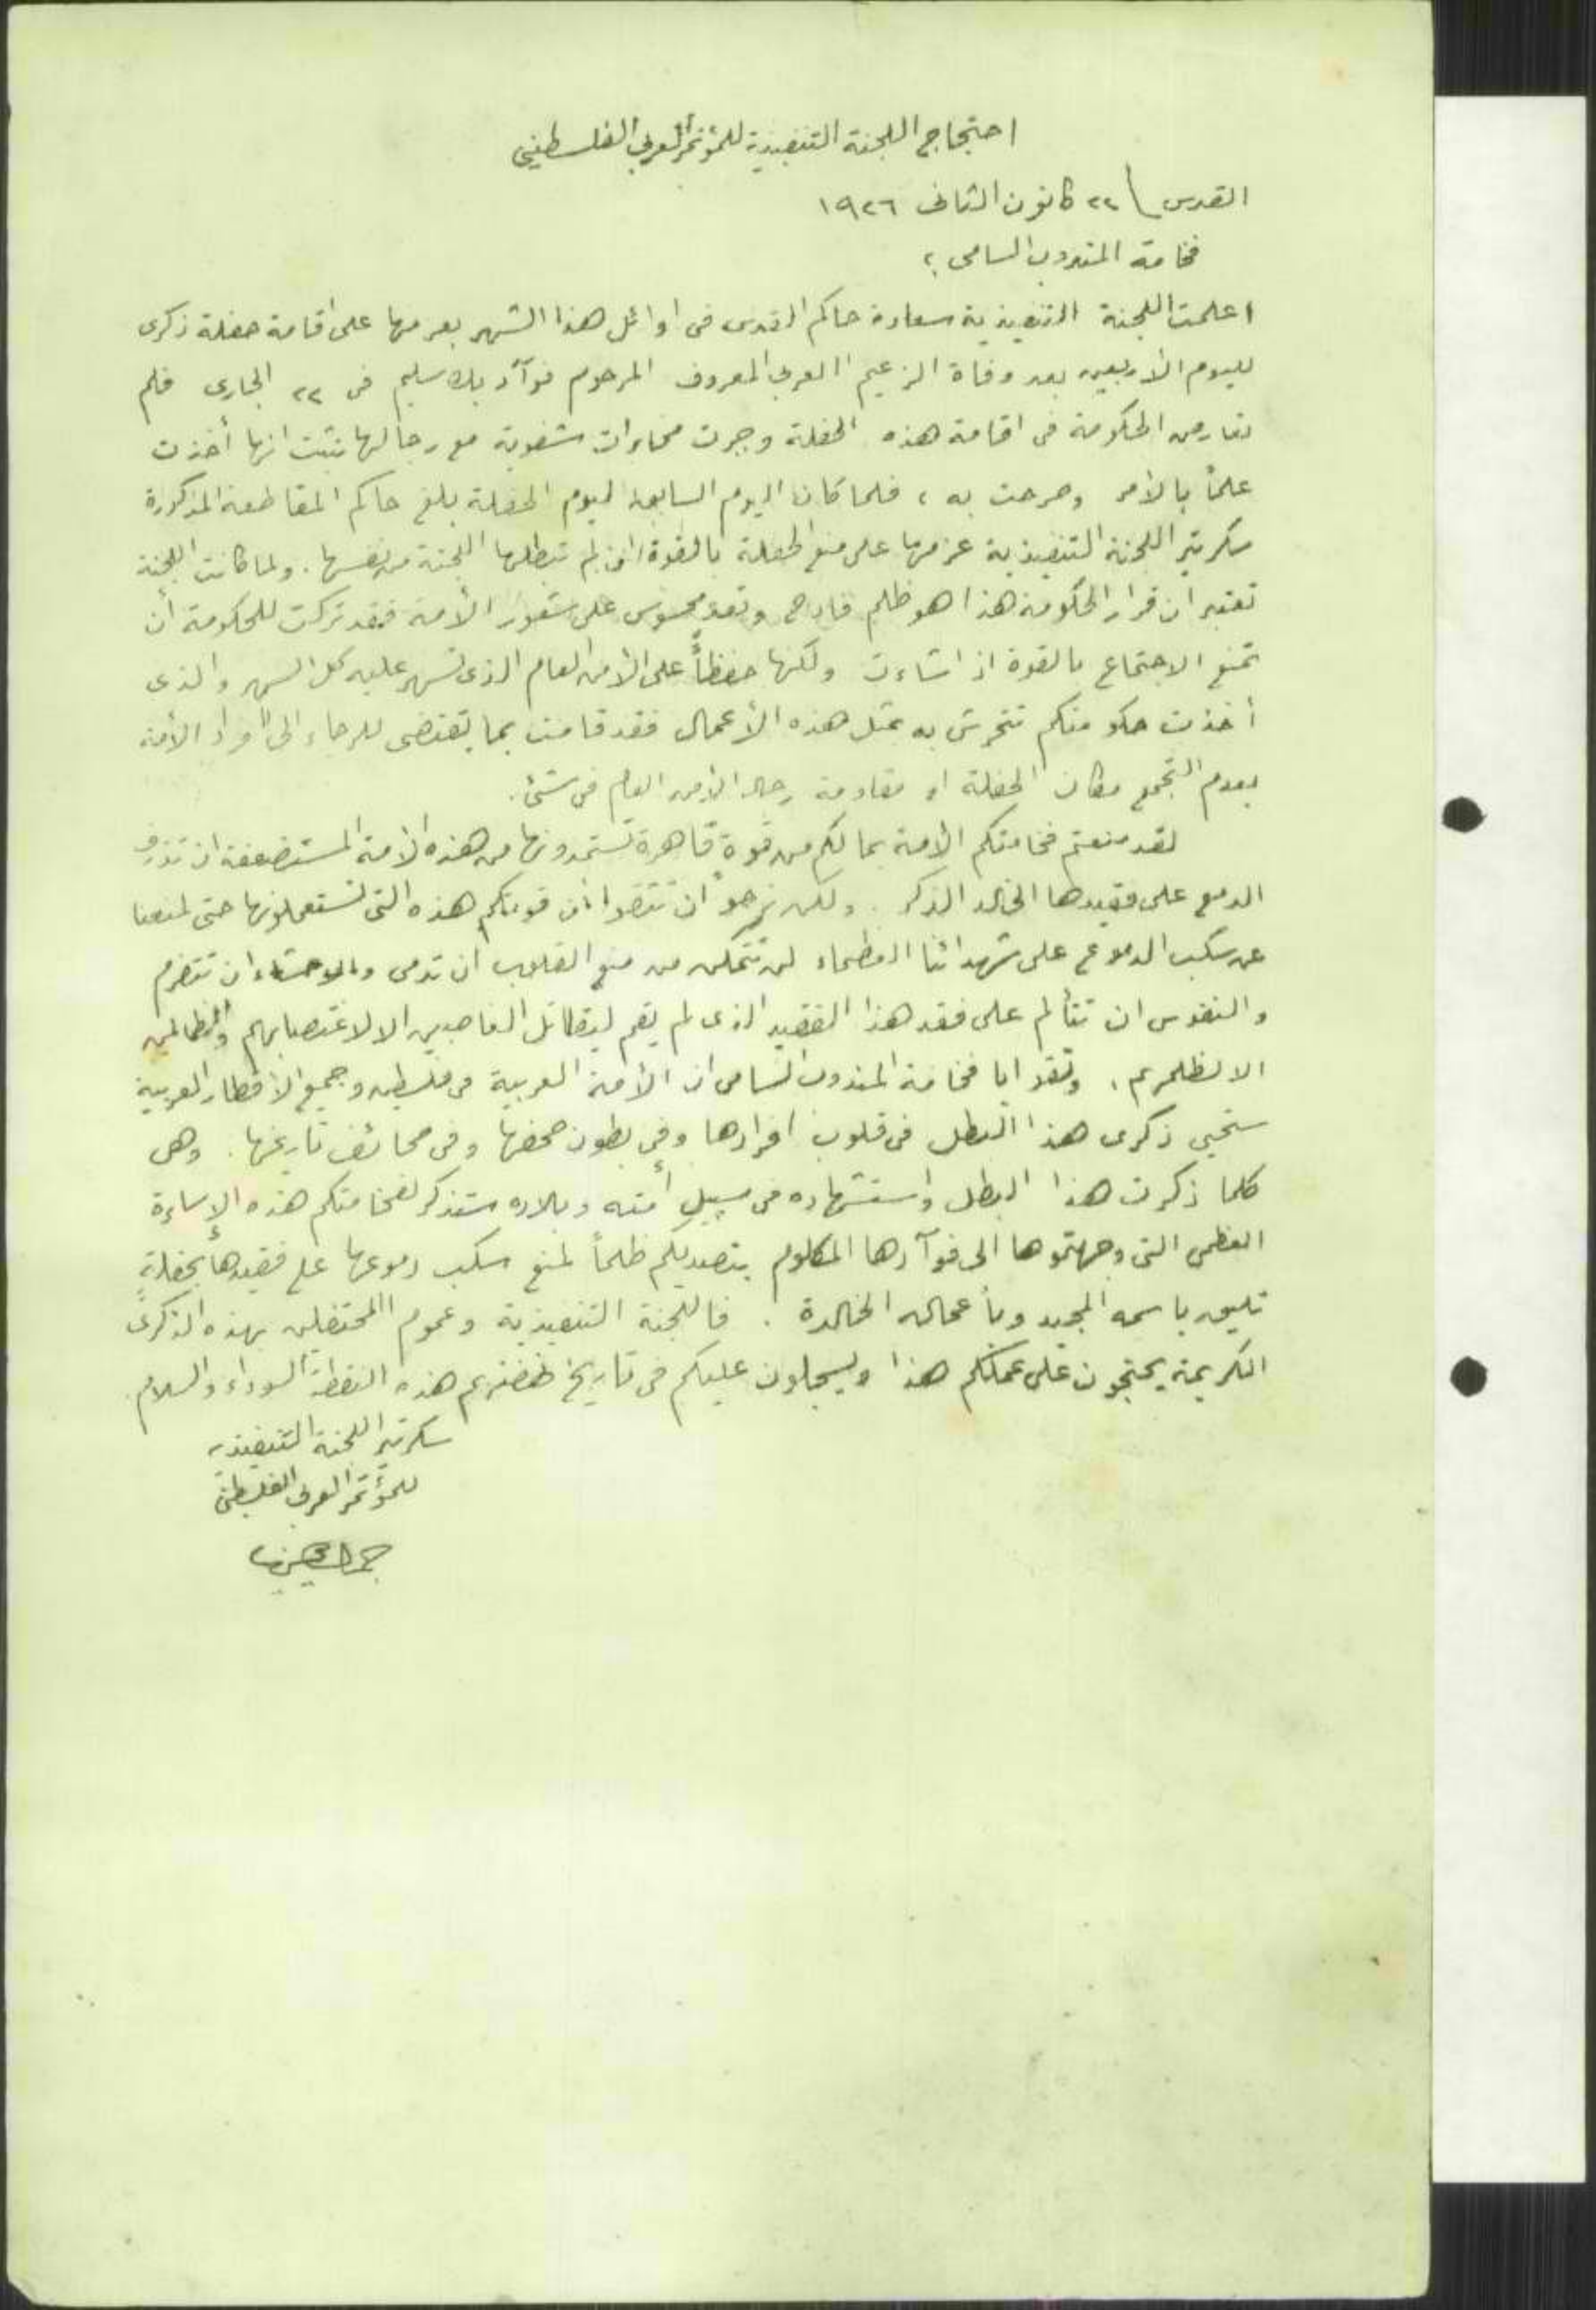 احتجاج اللجنة التنفيذية للمؤتمر العربي الفلسطيني
القدس \ ٢٢ كانون الثانى ١٩٢٦
فخامة المندوب السامى ؛
اعلمت اللجنة التنفيذية سعادة حاكم القدس فى اوائل هذا الشهر بعزمها على اقامة حفلة ذكرى
لليوم الأربعين بعد وفاة الزعيم العربي المعروف المرحوم فوآد بك سليم فى ٢٢ الجارى فلم
تعارض الحكومة فى اقامة هذه الحفلة وجرت مخابرات شفوية مع رجالها تثبت انها أخذت
علماً بالأمر وصرحت به ، فلما كان اليوم السابق ليوم الحفلة بلغ حاكم المقاطعة المذكورة
سكرتير اللجنة التنفيذية عزمها على منع الحفلة بالقوة ان لم تبطلها اللجنة من نفسها . ولما كانت اللجنة
تعتبر ان قرار الحكومة هذا هو ظلم فادح وتعد محسوس على شعور الأمة فقد تركت للحكومة أن
تمنع الاجتماع بالقوة اذ اشاءت ولكنها حفظاً على الأمن العام الذى تسهر عليه كل السهر والذى
أخذت حكومتكم تتحرش به بمثل هذه الأعمال فقد قامت بما يقتضى للرجاء الى افراد الأمة
بعدم التجمع مكان الحفلة او مقاومة رجال الأمن العام فى شئ .
لقد منعتم فخامتكم الأمة بما لكم من قوة قاهرة تستمدونها من هذه الأمة المستضعفة ان تذرف
الدمع على فقيدها الخالد الذكر . ولكن نرجو ان تثقوا بأن قوتكم هذه التى تستعملونها حتى لمنعنا
عن سكب الدموع على شهدائنا العظماء لن تتمكن من منع القلوب ان تدمى والاحشاء ان تتضرم
والنفوس ان تتألم على فقد هذا الفقيد الذى لم يقم ليقاتل الغاصبين الا لاغتصابهم والظالمين
الا لظلمهم . وثقو ايا فخامة المندوب السامى ان الأمة العربية فى فلسطين وجميع الأقطار العربية
ستحيي ذكرى هذا البطل فى قلوب افرادها وفى بطون صحفها وفى صحائف تاريخها . وهى
كلما ذكرت هذا البطل واستشهاده فى سبيل أمته وبلاده ستذكر لفخامتكم هذه الإساءة
العظمى التى وجهتموها الى فوآدها المكلوم بتصديكم ظلماً لمنع سكب دموعها على فقيدها بحفلةٍ
تليق باسمه المجيد وبأعماله الخالدة . فاللجنة التنفيذية وعموم المحتفلين بهذه الذكرى
الكريمة يحتجون على عملكم هذا ويسجلون عليكم فى تاريخ هذه النقطة السوداء والسلام .
سكرتير اللجنة التنفيذية
للمؤتمر العربي الفلسطينى
جمال الحسيني